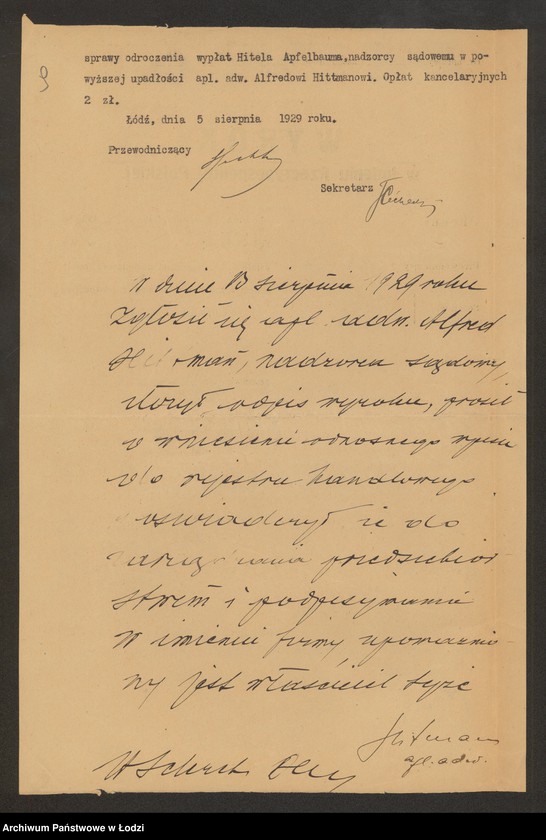 9
sprawy odroczenia wypłat Hitela Apfelbauma,nadzorcy sądowemu w po-
wyższej upadłości apl. adw. Alfredowi Hittmanowi. Opłat kancelaryjnych
2 zł.
Łódź, dnia 5 sierpnia 1929 roku.
Przewodniczący
Sekretarz
W dniu 13 sierpnia 1929 roku
zgłosił się apl. adw. Alfred
Hitman, nadzorca sądowy,
złożył odpis wyroku, prosił
o wniesienie odnośnego wpisu
do rejestru handlowego
oświadczył że do
zarządzania przedsiębior-
stwem i podpisywania
w imieniu firmy upoważnio-
ny jest właściciel tyże
Hitman
apl. adw.
Archiwum Państwowe w Łodzi